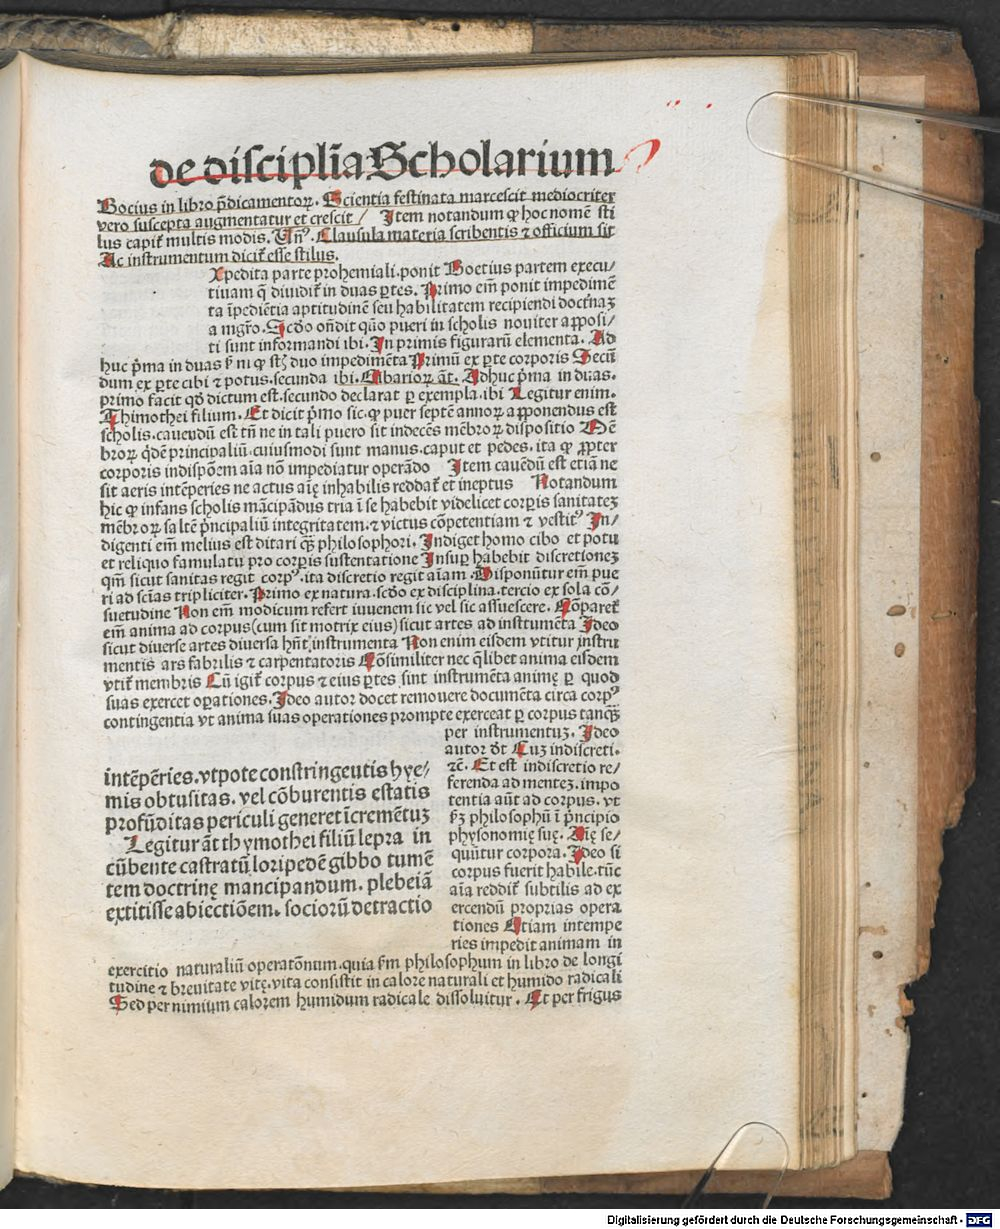 de discipli̅a Scholarium
Bocius in libro p̅dicamentoꝝ. Scientia festinata marcescit mediocriter
vero suscepta augmentatur et crescit / Item notandum ꝙ hoc nome̅ sti
lus capit̕ multis modis. Vn̅ꝰ. Clausula materia scribentis ⁊ officium sit
Ac instrumentum dicit̕ esse stilus.
Xpedita parte prohemiali. ponit Boetius partem execu/
tiuam q̅ diuidit̕ in duas ꝑtes. Primo em̅ ponit impedime̅
ta i̅pedie̅tia aptitudine̅ seu habilitatem recipiendi doctrinaꝫ
a mgr̅o. Scd̅o on̅dit quo̅ pueri in scholis nouiter apposi/
ti sunt informandi ibi. In primis figuraru̅ elementa. Ad
huc p̅ma in duas ẜm ꝙ st̅ duo impedime̅ta Primu̅ ex ꝑte corporis Secu̅
dum ex ꝑte cibi ⁊ potus. secunda ibi. Cibarioꝝ a̅t. Adhuc p̅ma in duas.
primo facit qd̅ dictum est. secundo declarat ꝑ exempla. ibi Legitur enim.
Thimothei filium. Et dicit p̅mo sic. ꝙ puer septe̅ annoꝝ apponendus est
scholis. cauendu̅ est tn̅ ne in tali puero sit indece̅s me̅broꝝ dispositio Me̅
broꝝ q̅de̅ principaliu̅. cuiusmodi sunt manus. caput et pedes. ita ꝙ ꝓpter
corporis indispo̅em ai̅a no̅ impediatur opera̅do Item caue̅du̅ est etia̅ ne
sit aeris inte̅peries ne actus ai̅ę inhabilis reddat̕ et ineptus Notandum
hic ꝙ infans scholis ma̅cipa̅dus tria i̅ se habebit videlicet corꝑis sanitateꝫ
me̅broꝝ salte̅ p̅ncipaliu̅ integritatem. ⁊ victus co̅petentiam ⁊ vestitꝰ In/
digenti em̅ melius est ditari qꝫ̅ philosophori. Indiget homo cibo et potu
et reliquo famulatu pro corꝑis sustentatione Insuꝑ habebit discretioneꝫ
qm̅ sicut sanitas regit corpꝰ. ita discretio regit ai̅am. Disponu̅tur em̅ pue
ri ad sci̅as tripliciter. Primo ex natura. scd̅o ex disciplina. tercio ex sola co̅/
suetudine Non em̅ modicum refert iuuenem sic vel sic assuescere. Co̅paret̕
em̅ anima ad corpus (cum sit motrix eius) sicut artes ad instrume̅ta Ideo
sicut diuerse artes diuersa hn̅t instrumenta Non enim eisdem vtitur instru
mentis ars fabrilis ⁊ carpentatoris Co̅similiter nec q̅libet anima eisdem
vtit̕ membris Cu̅ igit̕ corpus ⁊ eius ꝑtes sint instrume̅ta animę ꝑ quod
suas exercet oꝑationes. Ideo autor docet remouere docume̅ta circa corpꝰ
contingentia vt anima suas operationes prompte exerceat ꝑ corpus tanqꝫ̅
per instrumentuꝫ. Ideo
autor dt̅ Cuꝫ indiscreti.
⁊c̅. Et est indiscretio re/
ferenda ad menteꝫ. impo
tentia au̅t ad corpus. vt
ẜꝫ philosophu̅ i̅ p̅ncipio
physonomię suę. Ai̅ę se/
quu̅tur corpora. Ideo si
corpus fuerit habile. tu̅c
ai̅a reddit̕ subtilis ad ex
ercendu̅ proprias opera
tiones Etiam intempe
ries impedit animam in
inte̅peries. vtpote constringeutis hye/
mis obtusitas. vel co̅burentis estatis
profu̅ditas periculi generet i̅creme̅tuꝫ
Legitur a̅t thymothei filiu̅ lepra in
cu̅bente castratu̅ loripede̅ gibbo tume̅
tem doctrinę mancipandum. plebeia̅
extitisse abiectio̅em. socioru̅ detractio
exercitio naturaliu̅ operato̅num. quia ẜm philosophum in libro de longi
tudine ⁊ breuitate vitę. vita consistit in calore naturali et humido radicali
Sed per nimium calorem humidum radicale dissoluitur. Et per frigus
Digitalisierung gefördert durch die Deutsche Forschungsgemeinschaft - DFG